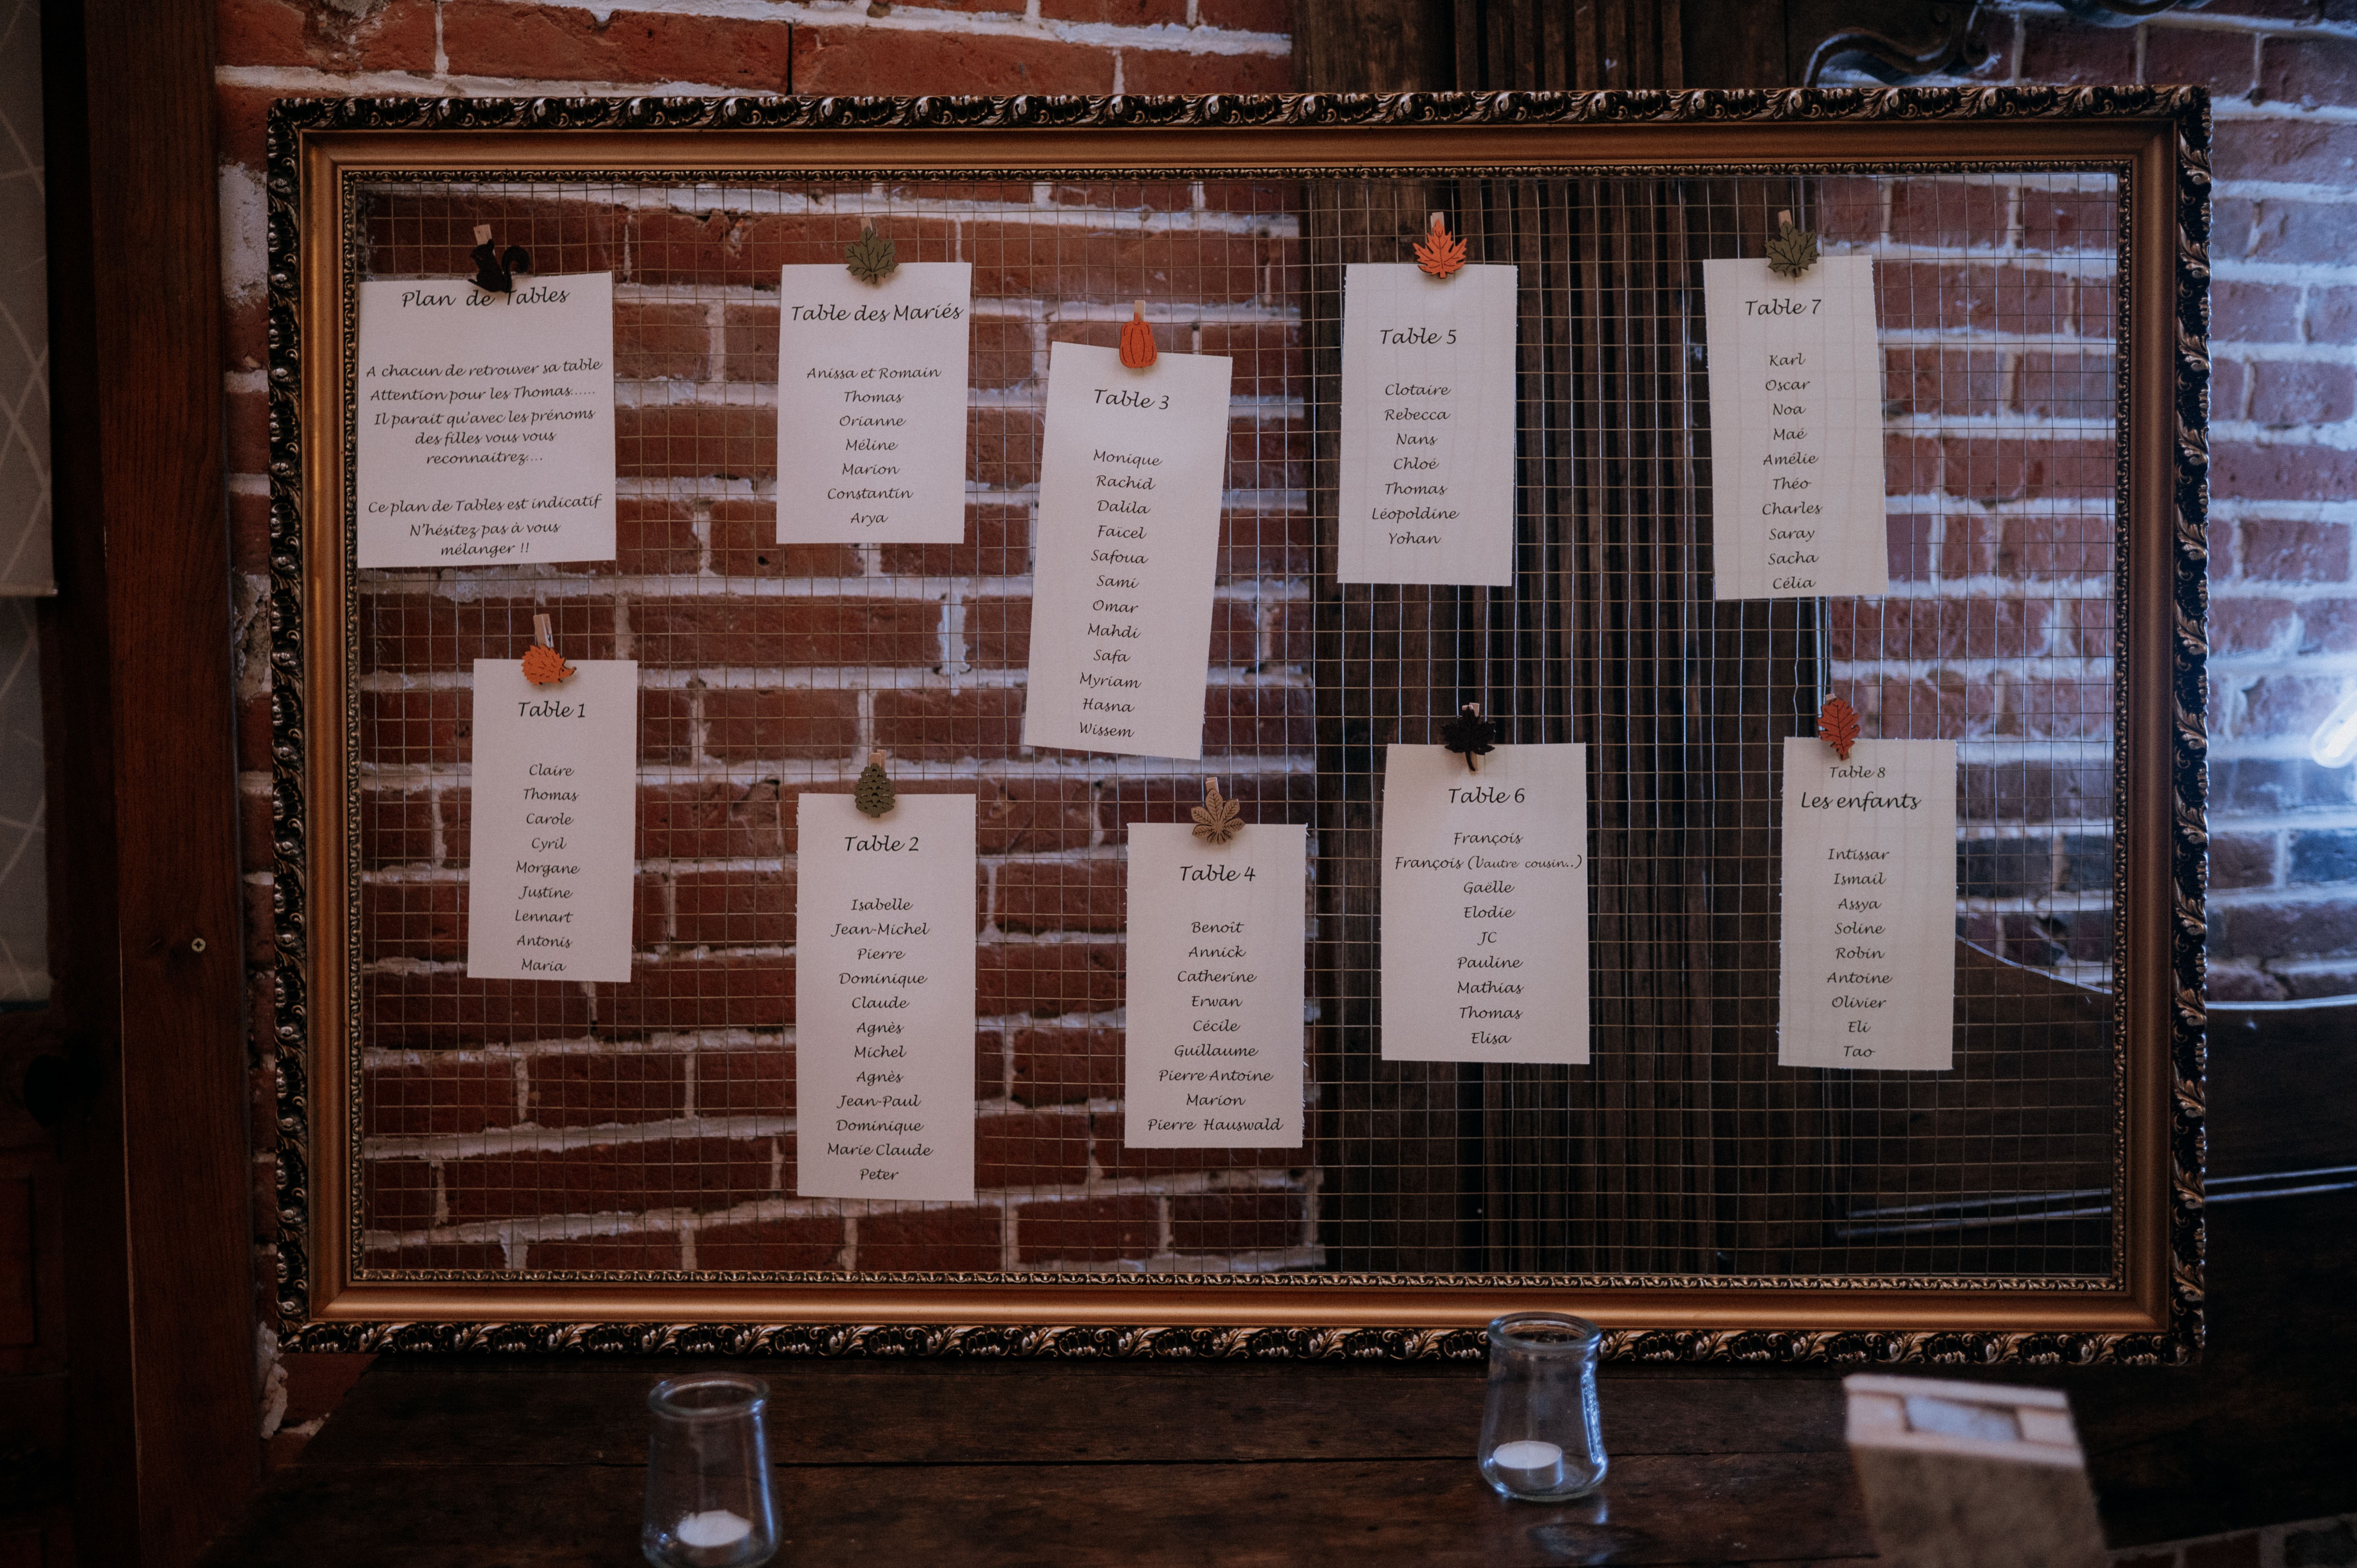 Plan de Tables
A chacun de retrouver sa table
Attention pour les Thomas......
Il parait qu'avec les prénoms
des filles vous vous
reconnaitrez....
Ce plan de Tables est indicatif
N'hésitez pas à vous
mélanger !!
Table des Mariés
Anissa et Romain
Thomas
Orianne
Méline
Marion
Constantin
Arya
Table 3
Monique
Rachid
Dalila
Faïcel
Safoua
Sami
Omar
Mahdi
Safa
Myriam
Hasna
Wissem
Table 5
Clotaire
Rebecca
Nans
Chloé
Thomas
Léopoldine
Yohan
Table 7
Karl
Oscar
Noa
Maé
Amélie
Théo
Charles
Saray
Sacha
Célia
Table 1
Claire
Thomas
Carole
Cyril
Morgane
Justine
Lennart
Antonis
Maria
Table 2
Isabelle
Jean-Michel
Pierre
Dominique
Claude
Agnès
Michel
Agnès
Jean-Paul
Dominique
Marie Claude
Peter
Table 4
Benoît
Annick
Catherine
Erwan
Cécile
Guillaume
Pierre Antoine
Marion
Pierre Hauswald
Table 6
François
François (l'autre cousin..)
Gaëlle
Elodie
JC
Pauline
Mathias
Thomas
Elisa
Table 8
Les enfants
Intissar
Ismail
Assya
Soline
Robin
Antoine
Olivier
Eli
Tao